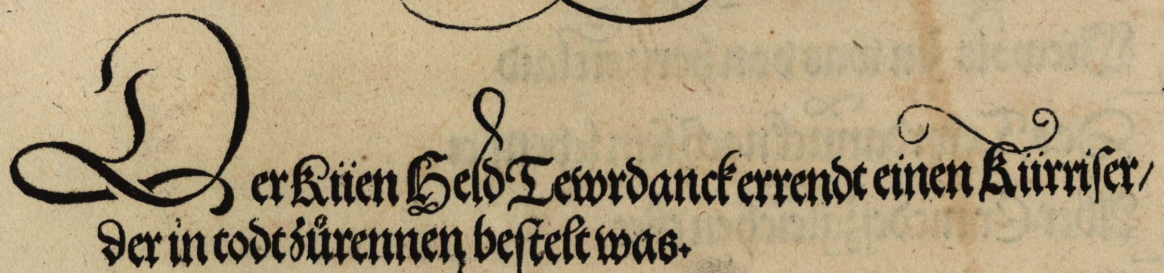 Der Küen Held Tewrdanck errendt einen Kürriser/
der in todt zůrennen bestelt was.